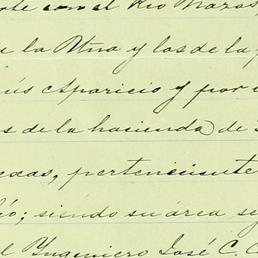 rte con el Rio Nazas,
e la Etna y las de la p
ús Aparicio y por e
s de la hacienda de
exas, perteneciente
ió; siendo su área se
l Yngeniero José C. C